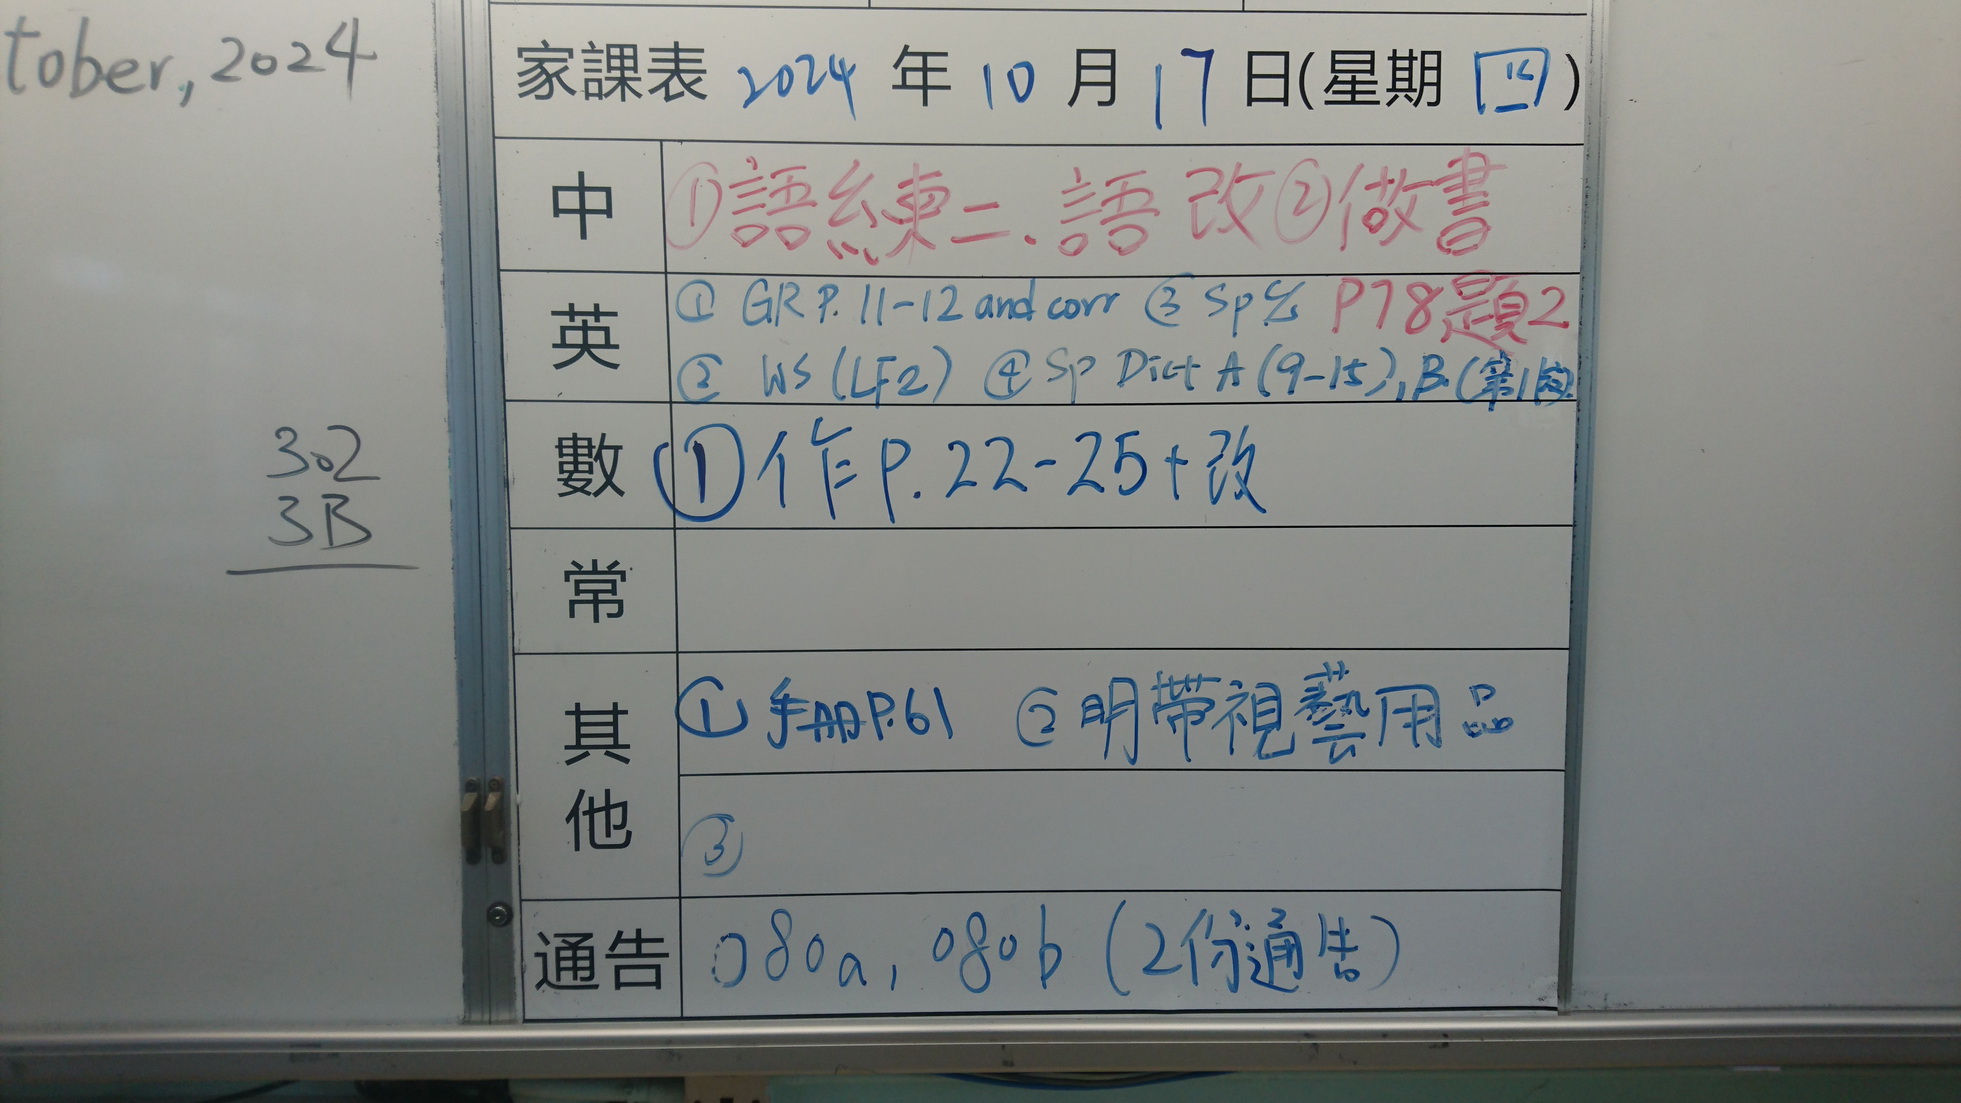 tober, 2024
302
3B
家課表 2024 年 10 月 17 日(星期 四)
中 ①語練二、語改②做書
P78題2
英 ① GR P. 11-12 and corr ③ Sp
② WS (LF2) ④ Sp Dict A (9-15), B (第1段)
數 ①作P.22-25+改
常
其他 ①手冊P.61 ②明帶視藝用品
③
通告 080a, 080b (2份通告)